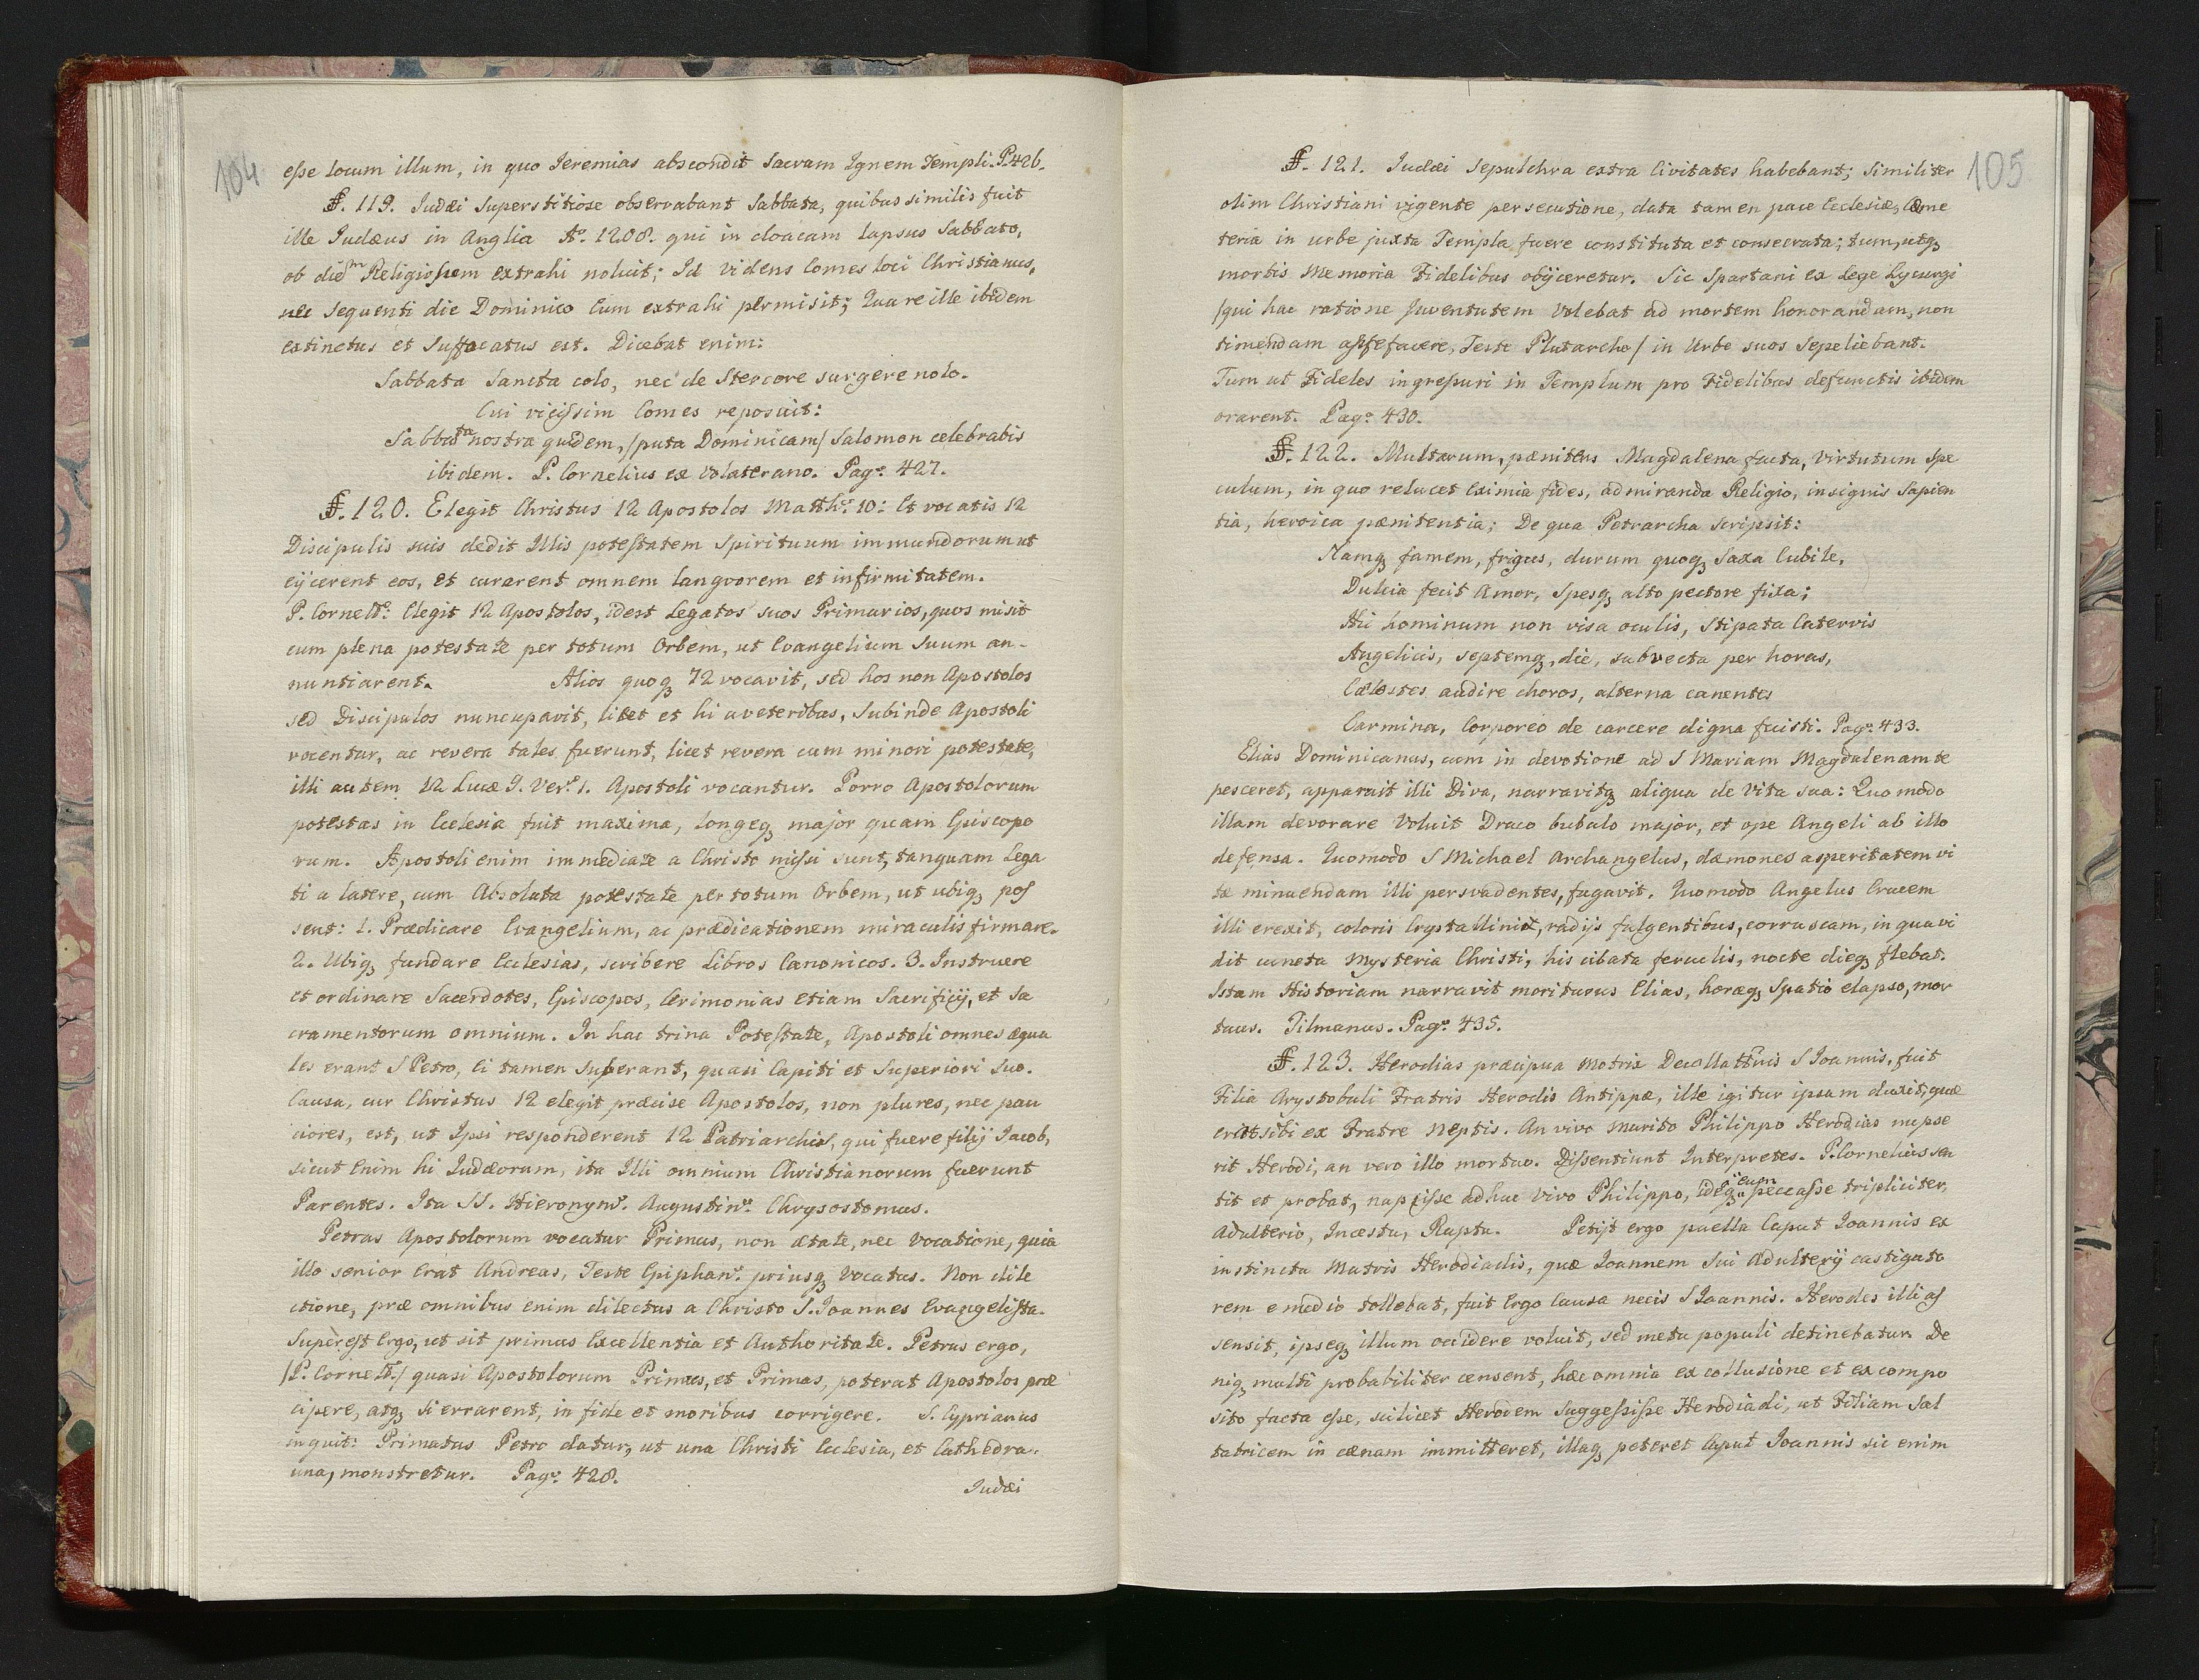 104
esse locum illum, in quo Jeremias abscondit Sacrum Ignem Templi. P. 426.
§. 119. Judæi Superstitiose observabant Sabbata, quibus similis fuit
ille Judæus in Anglia Aº. 1208. qui in cloacam lapsus Sabbato,
ob diem Religiosum extrahi noluit; Id videns Comes loci Christianus,
nec sequenti die Dominico Eum extrahi permisit; Quare ille ibidem
extinctus et Suffocatus est. Dicebat enim:
Sabbata Sancta colo, nec de Stercore surgere nolo.
Cui vicissim Comes reposuit:
Sabbata nostra quidem, /puta Dominicam/ Salomon celebrabis
ibidem. P. Cornelius ex Volaterano. Pagº. 427.
§. 120. Elegit Christus 12 Apostolos Matthˢ: 10: Et vocatis 12
Discipulis suis dedit Illis potestatem Spirituum immundorum ut
eijcerent eos, et curarent omnem langvorem et infirmitatem.
P. Cornelˢ: Elegit 12 Apostolos, idest Legatos suos Primarios, quos misit
cum plena potestate per totum Orbem, ut Evangelium Suum an-
nuntiarent. Alios quoq; 72 vocavit, sed hos non Apostolos
sed Discipulos nuncupavit, licet et hi a veteribus, Subinde Apostoli
vocentur, ac revera tales fuerunt, licet revera cum minori potestate,
illi autem 12 Lucæ 9. Verˢ. 1. Apostoli vocantur. Porro Apostolorum
potestas in Ecclesia fuit maxima, longeq; major quam Episcopo
rum. Apostoli enim immediate a Christo missi sunt, tanquam Lega
ti a latere, cum Absoluta potestate per totum Orbem, ut ubiq; pos
sent: 1. Prædicare Evangelium, ac prædicationem miraculis firmare.
2. Ubiq; fundare Ecclesias, scribere Libros Canonicos. 3. Instruere
et ordinare Sacerdotes, Episcopos, Cerimonias etiam Sacrificij, et Sa
cramentorum omnium. In hac trina Potestate, Apostoli omnes æqua
les erant S Petro, Ei tamen Suberant, quasi Capiti et Superiori Suo.
Causa, cur Christus 12 elegit præcise Apostolos, non plures, nec pau
ciores, est, ut Ipsi responderent 12 Patriarchis, qui fuere filij Jacob,
sicut Enim hi Judæorum, ita Illi omnium Christianorum fuerunt
Parentes. Ita SS. Hieronymˢ. Augustinˢ. Chrysostomus.
Petrus Apostolorum vocatur Primus, non ætate, nec Vocatione, quia
illo senior Erat Andreas, Teste Epiphanˢ. priusq; Vocatus. Non dile
ctione, præ omnibus enim dilectus a Christo S. Joannes Evangelista.
Superest Ergo, ut sit primus Excellentia et Authoritate. Petrus ergo,
/P. Cornelˢ./ quasi Apostolorum Primus, et Primas, poterat Apostolos præ
cipere, atq; si errarent, in fide et moribus corrigere. S. Cyprianus
inquit: Primatus Petro datur, ut una Christi Ecclesia, et Cathedra
una, monstretur. Pagº. 428.
Judæi
105
§. 121. Judæi Sepulchra extra Civitates habebant; Similiter
olim Christiani vigente persecutione, data tamen pace Ecclesiæ, Cæme
teria in urbe juxta Templa fuere constituta et consecrata; tum, utq;
mortis Memoria Fidelibus objiceretur. Sic Spartani ex Lege Lycurgi
/qui hac ratione Juventutem Volebat ad mortem honorandam, non
timendam assefacere, Teste Plutarcho/ in Urbe suos Sepeliebant.
Tum ut Fideles ingressuri in Templum pro Fidelibus defunctis ibidem
orarent. Pagº. 430.
§. 122. Multarum, pænitens Magdalena facta, Virtutum Spe
culum, in quo relucet Eximia fides, admiranda Religio, insignis Sapien
tia, heroica pænitentia; De qua Petrarcha scripsit:
Namq; famem, frigus, durum quoq; Saxa Cubile,
Dulcia fecit Amor, Spesq; alto pectore fixa;
Hic hominum non visa oculis, Stipata Catervis
Angelicis, septemq; die, subvecta per horas,
Cælestes audire choros, alterna canentes
Carmina, Corporeo de carcere digna fuisti. Pagº. 433.
Elias Dominicanus, cum in devotione ad S Mariam Magdalenam te
pesceret, apparuit illi Diva, narravitq; aliqua de Vita sua: Quomodo
illam devorare Voluit Draco bubalo major, et ope Angeli ab illo
defensa. Quomodo S Michael Archangelus, dæmones asperitatem vi
tæ minuendam illi persvadentes, fugavit. Quomodo Angelus Crucem
illi erexit, coloris Crystallini, radijs fulgentibus, corruscam, in qua vi
dit cuncta Mysteria Christi, his cibata ferculis, nocte dieq; flebat.
Istam Historiam narravit moriturus Elias, horæq; Spatio elapso, mor
tuus. Tilmanus. Pagº. 435.
§. 123. Herodias præcipua Motrix Decollattnis S Joannis, fuit
Filia Arystobuli Fratris Herodis Antippæ, ille igitur ipsam duxit, quæ
erat sibi ex Fratre Neptis. An vivo Marito Philippo Herodias nupse
rit Herodi, an vero illo mortuo. Dissentiunt Interpretes. P. Cornelius sen
tit et probat, nupsisse adhuc vivo Philippo, ideoq; eum peccasse tripliciter,
Adulterio, Incestu, Raptu. Petijt ergo puella Caput Joannis ex
instinctu Matris Herodiadis, quæ Joannem Sui Adulterij castigato
rem e medio tollebat, fuit Ergo Causa necis S Joannis. Herodes illi as
sensit, ipseq; illum occidere voluit, sed metu populi detinebatur. De
niq; multi probabiliter censent, hæc omnia ex collusione et ex compo
sito facta esse, scilicet Herodem Suggessisse Herodiadi, ut Filiam Sal
tatricem in cænam immitteret, illaq; peteret Caput Joannis sic enim